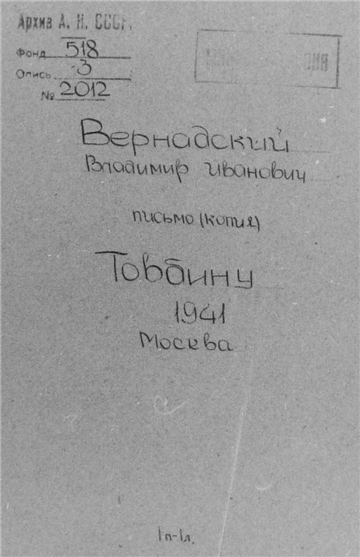 Архив А. Н. СССР.
Фонд 518
Опись 3
№ 2012
Вернадский
Владимир Иванович
письмо (копия)
Товбину
1941
Москва
1п-1л.